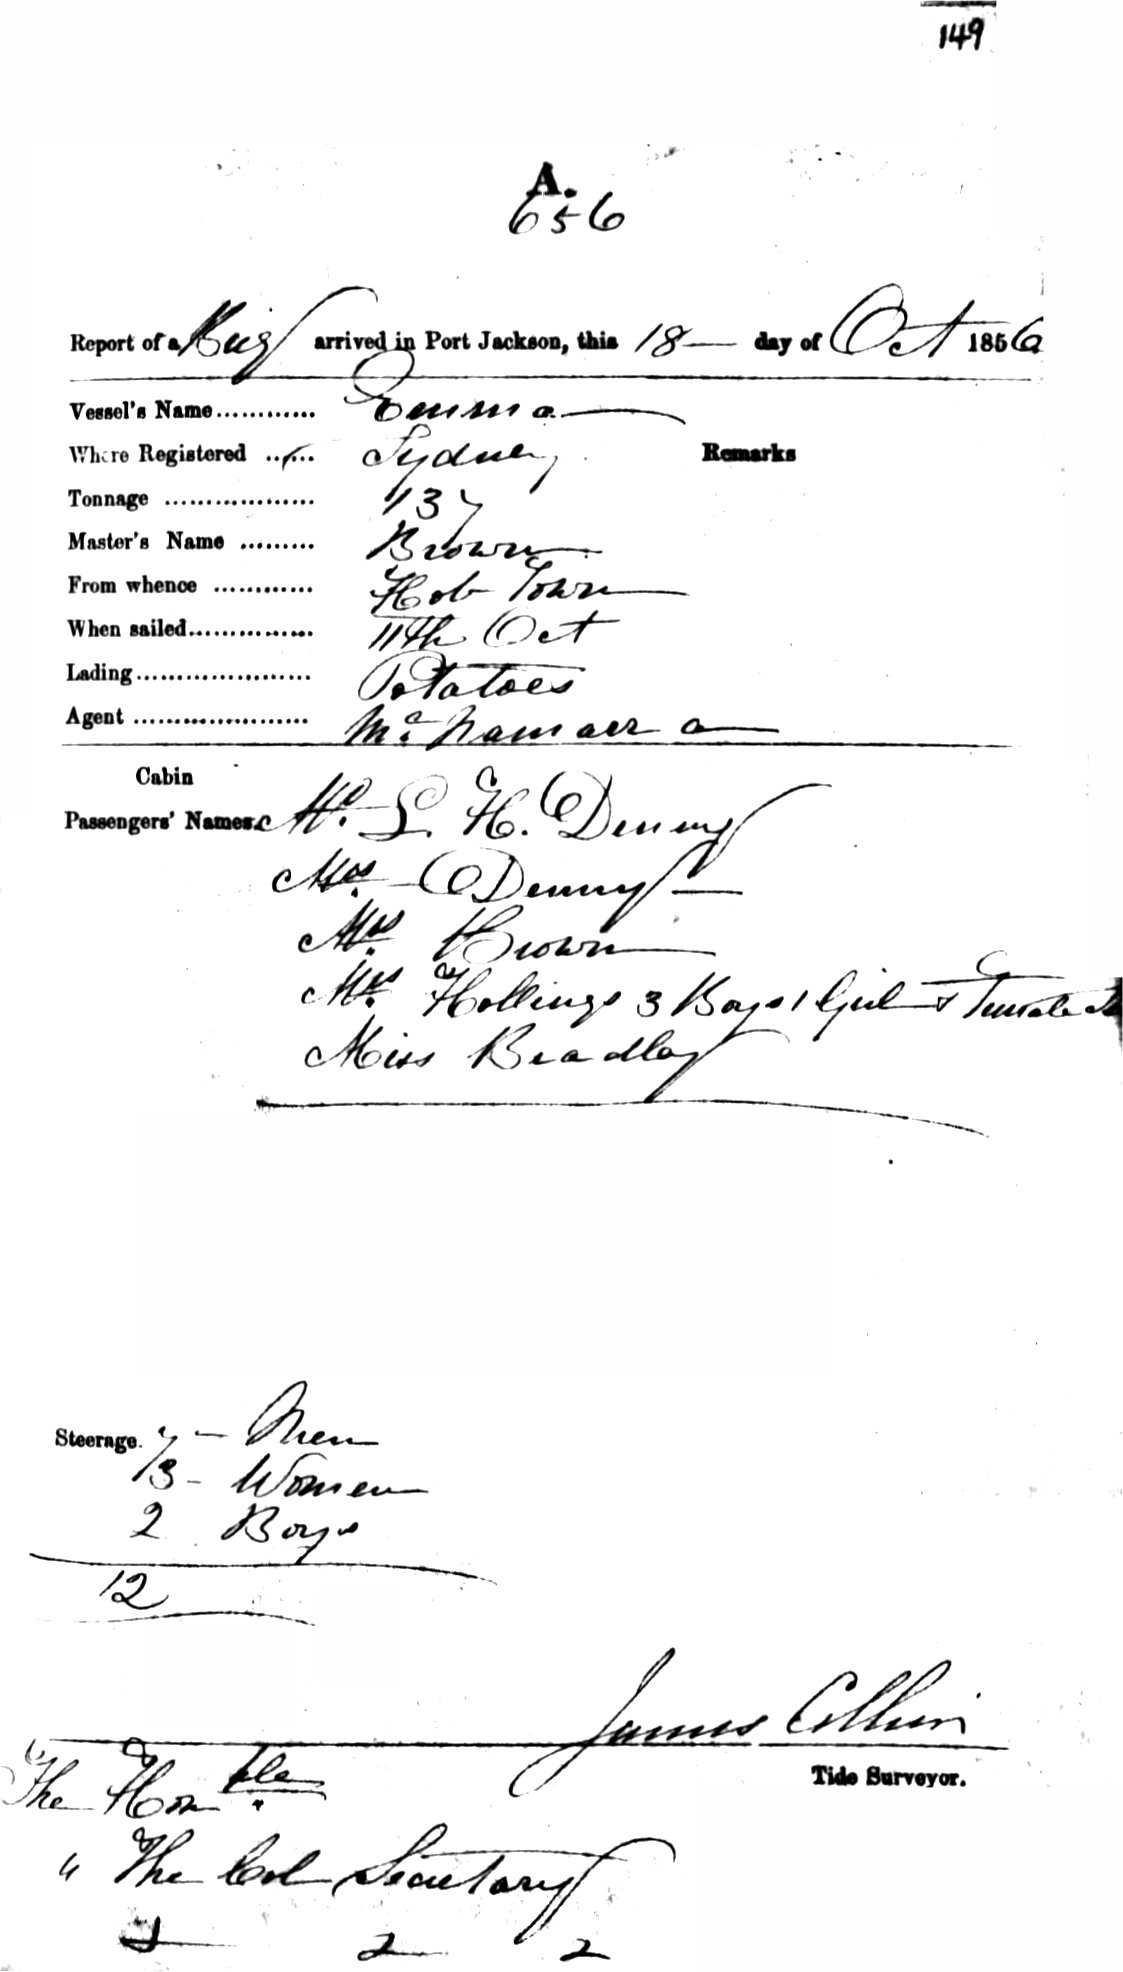 149
A.
656
Report of a Brig arrived in Port Jackson, this 18 — day of Oct 1856
Vessel's Name ............ Emma
Where Registered ...... Sydney
Remarks
Tonnage .................. 137
Master's Name ......... Brown
From whence ............ Hob Town
When sailed............... 11th Oct
Lading..................... Potatoes
Agent ..................... McNamarra
Cabin
Passengers' Names. Mr. L. H. Denny
Mrs. Denny
Mrs. Brown
Mrs. Hollings 3 Boys 1 Girl & Female
Miss Bradley
Steerage. 7 — Men
3 - Women
2 Boys
12
James Collin
Tide Surveyor.
The Honble
" The Col Secretary
2 2